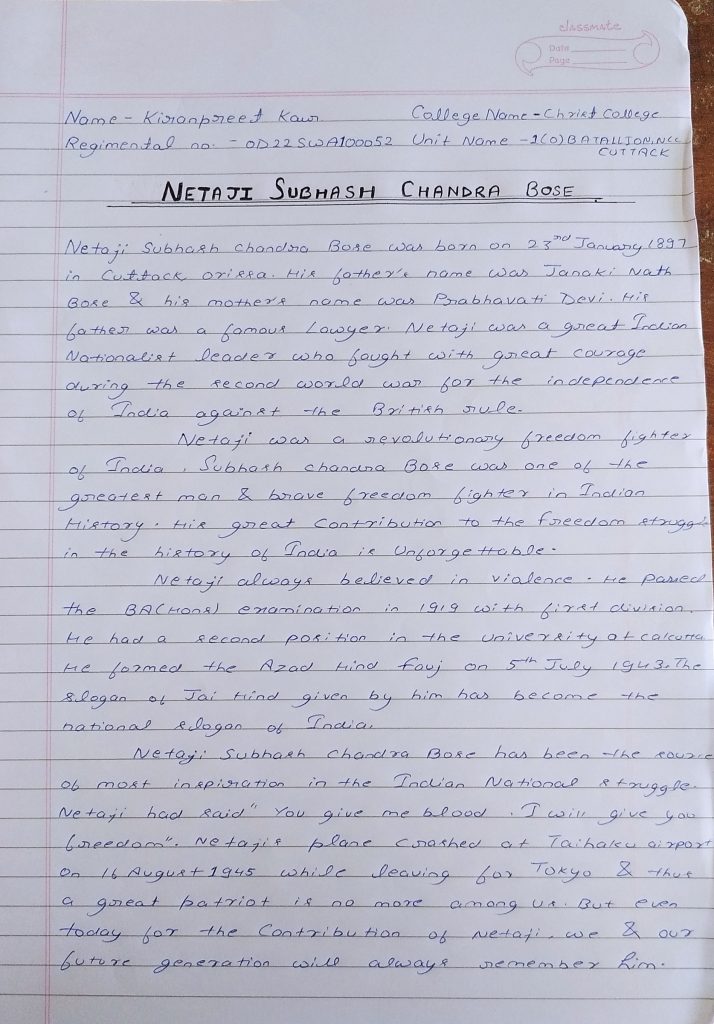 classmate
Date
Page
Name - Kiranpreet Kaur College Name - Christ College
Regimental no. - OD22SWA100052 Unit Name - 1(O)BATALLION, NCC
CUTTACK
NETAJI SUBHASH CHANDRA BOSE
Netaji Subhash Chandra Bose was born on 23rd January 1897
in Cuttack orissa. His father's name was Janaki Nath
Bose & his mother's name was Prabhavati Devi. His
father was a famous Lawyer. Netaji was a great Indian
Nationalist leader who fought with great courage
during the second world war for the independence
of India against the British rule.
Netaji was a revolutionary freedom fighter
of India. Subhash chandra Bose was one of the
greatest man & brave freedom fighter in Indian
History. His great Contribution to the freedom struggle
in the history of India is Unforgettable.
Netaji always believed in violence. He passed
the BA(Hons) examination in 1919 with first division.
He had a second position in the university of calcutta
He formed the Azad Hind fauj on 5th July 1943. The
slogan of Jai Hind given by him has become the
national slogan of India.
Netaji Subhash Chandra Bose has been the source
of most inspiration in the Indian National struggle.
Netaji had said "You give me blood. I will give you
freedom". Netajis plane crashed at Taihaku airport
on 16 August 1945 while leaving for Tokyo & thus
a great patriot is no more among us. But even
today for the Contribution of Netaji, we & our
future generation will always remember him.